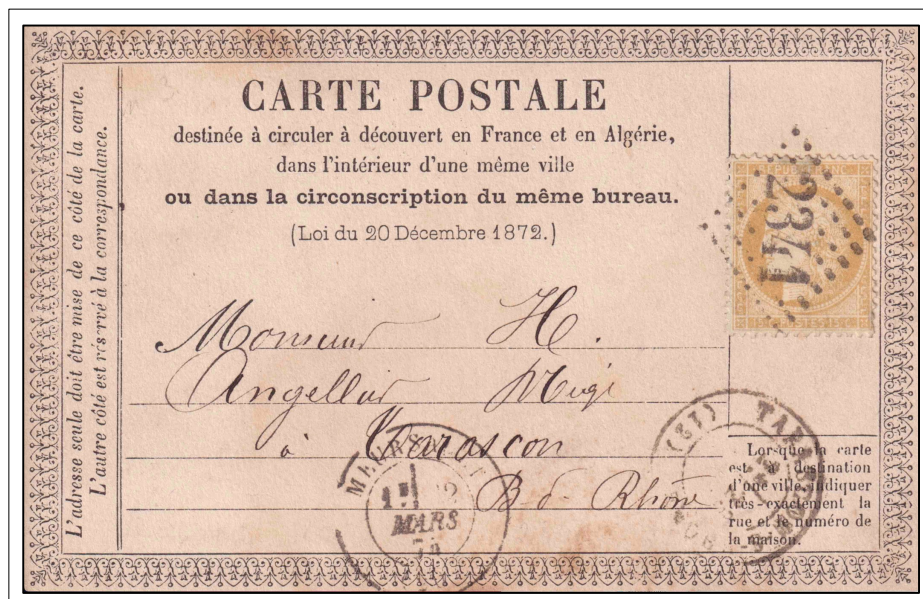 L'adresse seule doit être mise de ce côté de la carte.
L'autre côté est réservé à la correspondance.
CARTE POSTALE
destinée à circuler à découvert en France et en Algérie,
dans l'intérieur d'une même ville
ou dans la circonscription du même bureau.
(Loi du 20 Décembre 1872.)
2341
Monsieur H.
à Tarascon
B. d. Rhône
MARS
Lorsque la carte
est à destination
d'une ville, indiquer
très-exactement la
rue et le numéro de
la maison.